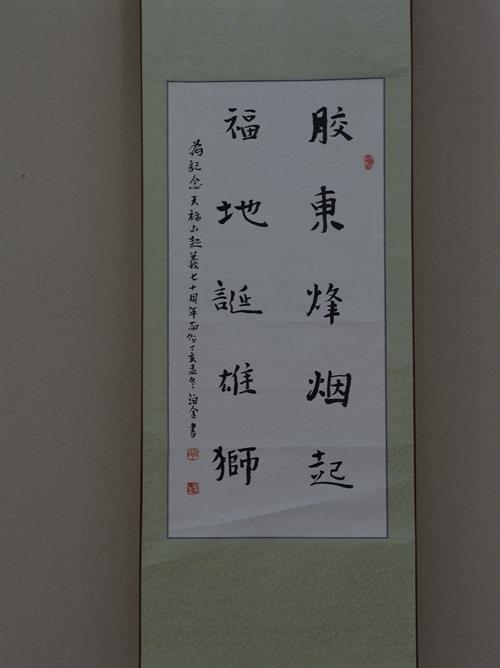 胶東烽烟起
福地誕雄獅
為記念天福山起義七十周年而作丁亥孟冬海金書